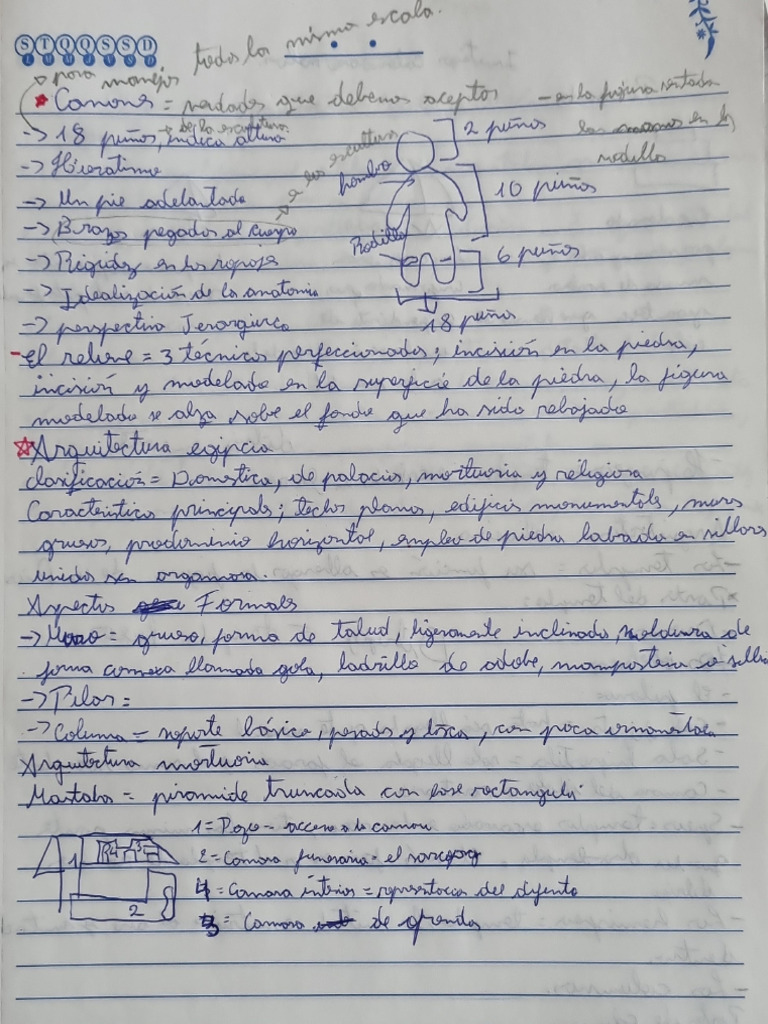 STQQSSD
todos la misma escala.
para manejos
Canones = verdades que debemos aceptos - en la figura sentada
las manos en la
rodillas
-> 18 puños, indica altura
de la escultura
-> Hieratismo
-> Un pie adelantado
-> Brazos pegados al cuerpo
a las escultura
-> Rigidez en los ropaje
-> Idealización de la anatomia
-> perspectiva Jerarquica
2 puños
hombro
10 puños
Rodilla
6 puños
18 puños
- El relieve = 3 técnicas perfeccionadas; incisión en la piedra,
incisión y modelado en la superficie de la piedra, la figura
modelada se alza sobre el fondo que ha sido rebajado
Arquitectura egipcia
clasificación = Domestica, de palacios, mortuoria y religiosa
Caracteristica principals; techos planos, edificios monumentals, muros
gruesos, predominio horizontal, empleo de piedra labrada en sillares
unidos sen argamasa.
Aspectos Formals
-> Muro = grueso, forma de talud, ligeramente inclinado, moldura de
forma concava llamada gola, ladrillo de adobe, mamposteria o silla
-> Pilar =
-> Columna = soporte básico, pesados y tosca, con poca ornamentac
Arquitectura mortuoria
Mastaba = piramide truncada con base rectangular
1 = Pozo - acceso a la camara
2 = Camara funeraria = el sarcofago
4 = Camara interios = representacia del difunto
3 = Camara de ofrendas
1
4
3
2